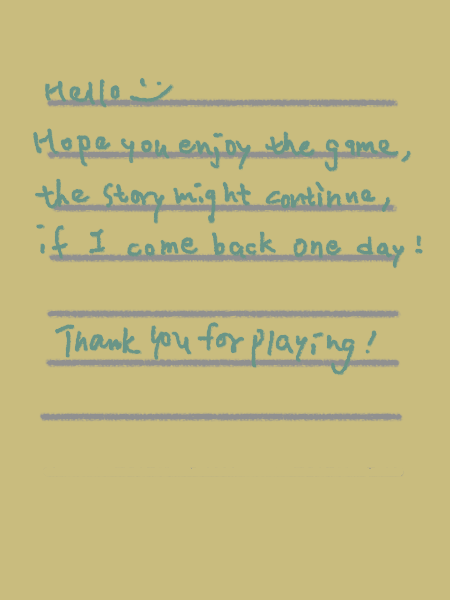 Hello
Hope you enjoy the game,
the story might continue,
if I come back one day!
Thank you for playing!